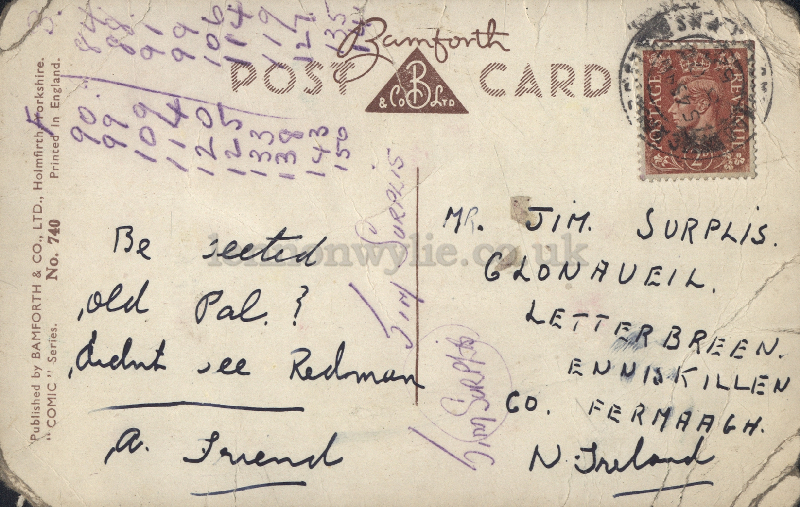 Bamforth
POST CARD
B
& Co LTD
Published by BAMFORTH & CO., LTD., Holmfirth Yorkshire.
"COMIC" Series. No. 740 Printed in England.
84
88
91
99
106
114
119
127
135
90
99
109
114
120
125
133
138
143
150
Be seeted
old Pal. ?
didnt see Redman
A. Friend
Jim Surplis
Jim Surplis
POSTAGE REVENUE
MR. JIM. SURPLIS.
GLONAVEIL.
LETTERBREEN.
ENNISKILLEN
CO. FERMAAGH.
N. Ireland
lennonwylie.co.uk